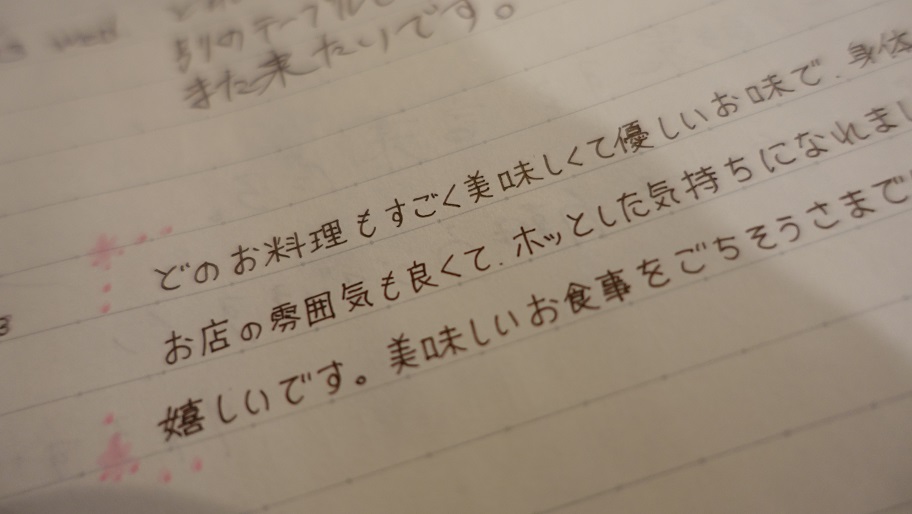 別のテーブルで
また来たいです。
どのお料理もすごく美味しくて優しいお味で、身体
お店の雰囲気も良くて、ホッとした気持ちになれまし
嬉しいです。美味しいお食事をごちそうさまで